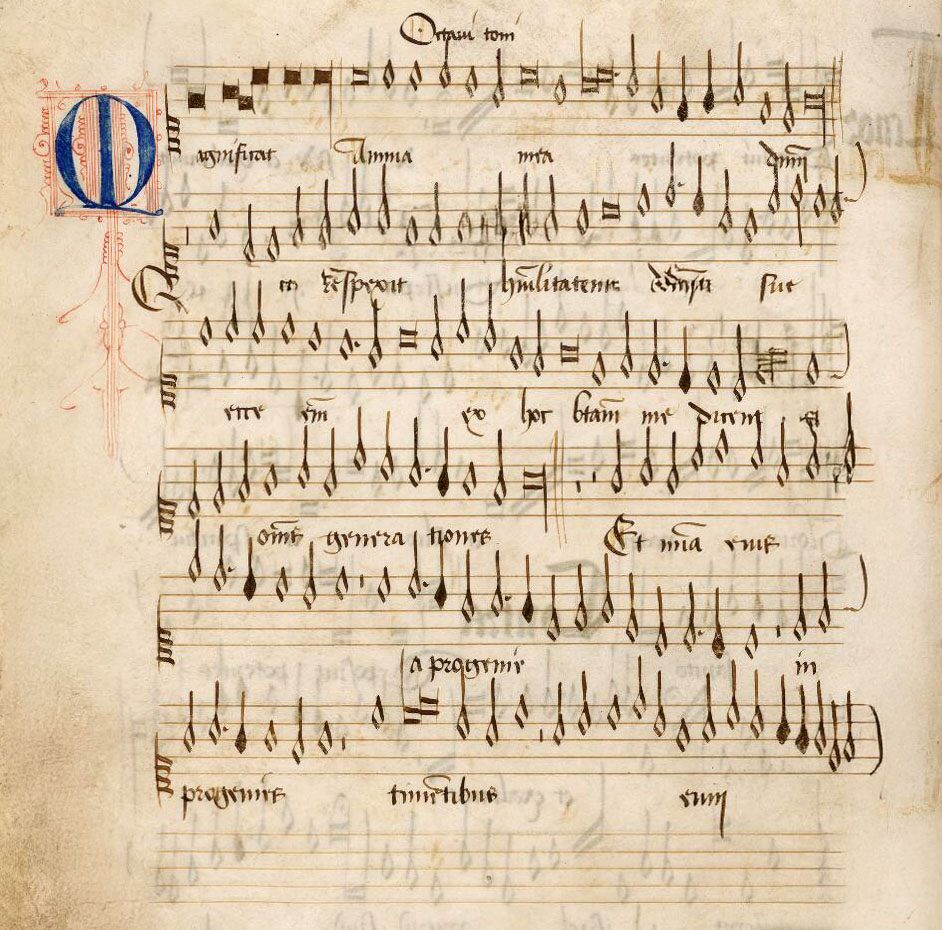 Octavi toni
Magnificat Anima mea dnm
Quia respexit humilitatem ancille sue
ecce em ex hoc btam me dicent
oms generationes Et mia eius
a progenie in
progenies timetibus eum